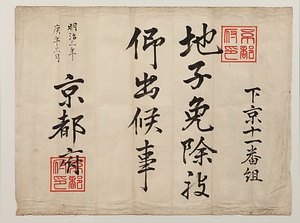 下京十一番組
地子免除被
仰出候事
明治三年
庚午六月
京都府